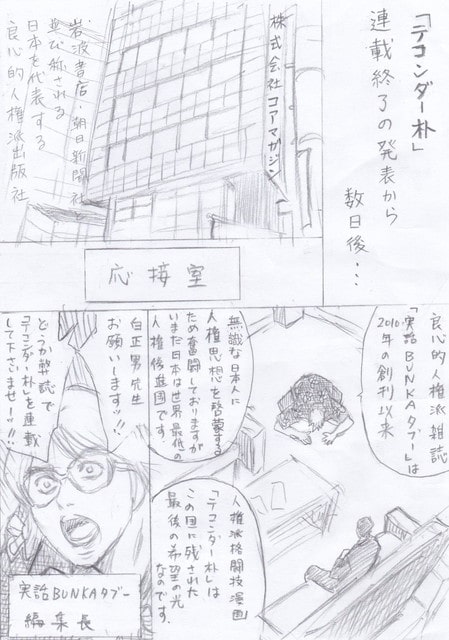 「テコンダー朴」
連載終了の発表から
数日後…
株式会社コアマガジン
岩波書店・朝日新聞社と
並び称される
日本を代表する
良心的人権派出版社
応接室
良心的人権派雑誌
「実話BUNKAタブー」は
2010年の創刊以来
無識な日本人に
人権思想を啓蒙する
ため奮闘しておりますが
いまだ日本は世界最低の
人権後進国です
人権派格闘技漫画
「テコンダー朴」は
この国に残された
最後の希望の光
なのです.
白正男先生
お願いしますッ!!
どうか弊誌で
「テコンダー朴」を連載
して下さいませーッ!!
実話BUNKAタブー
編集長